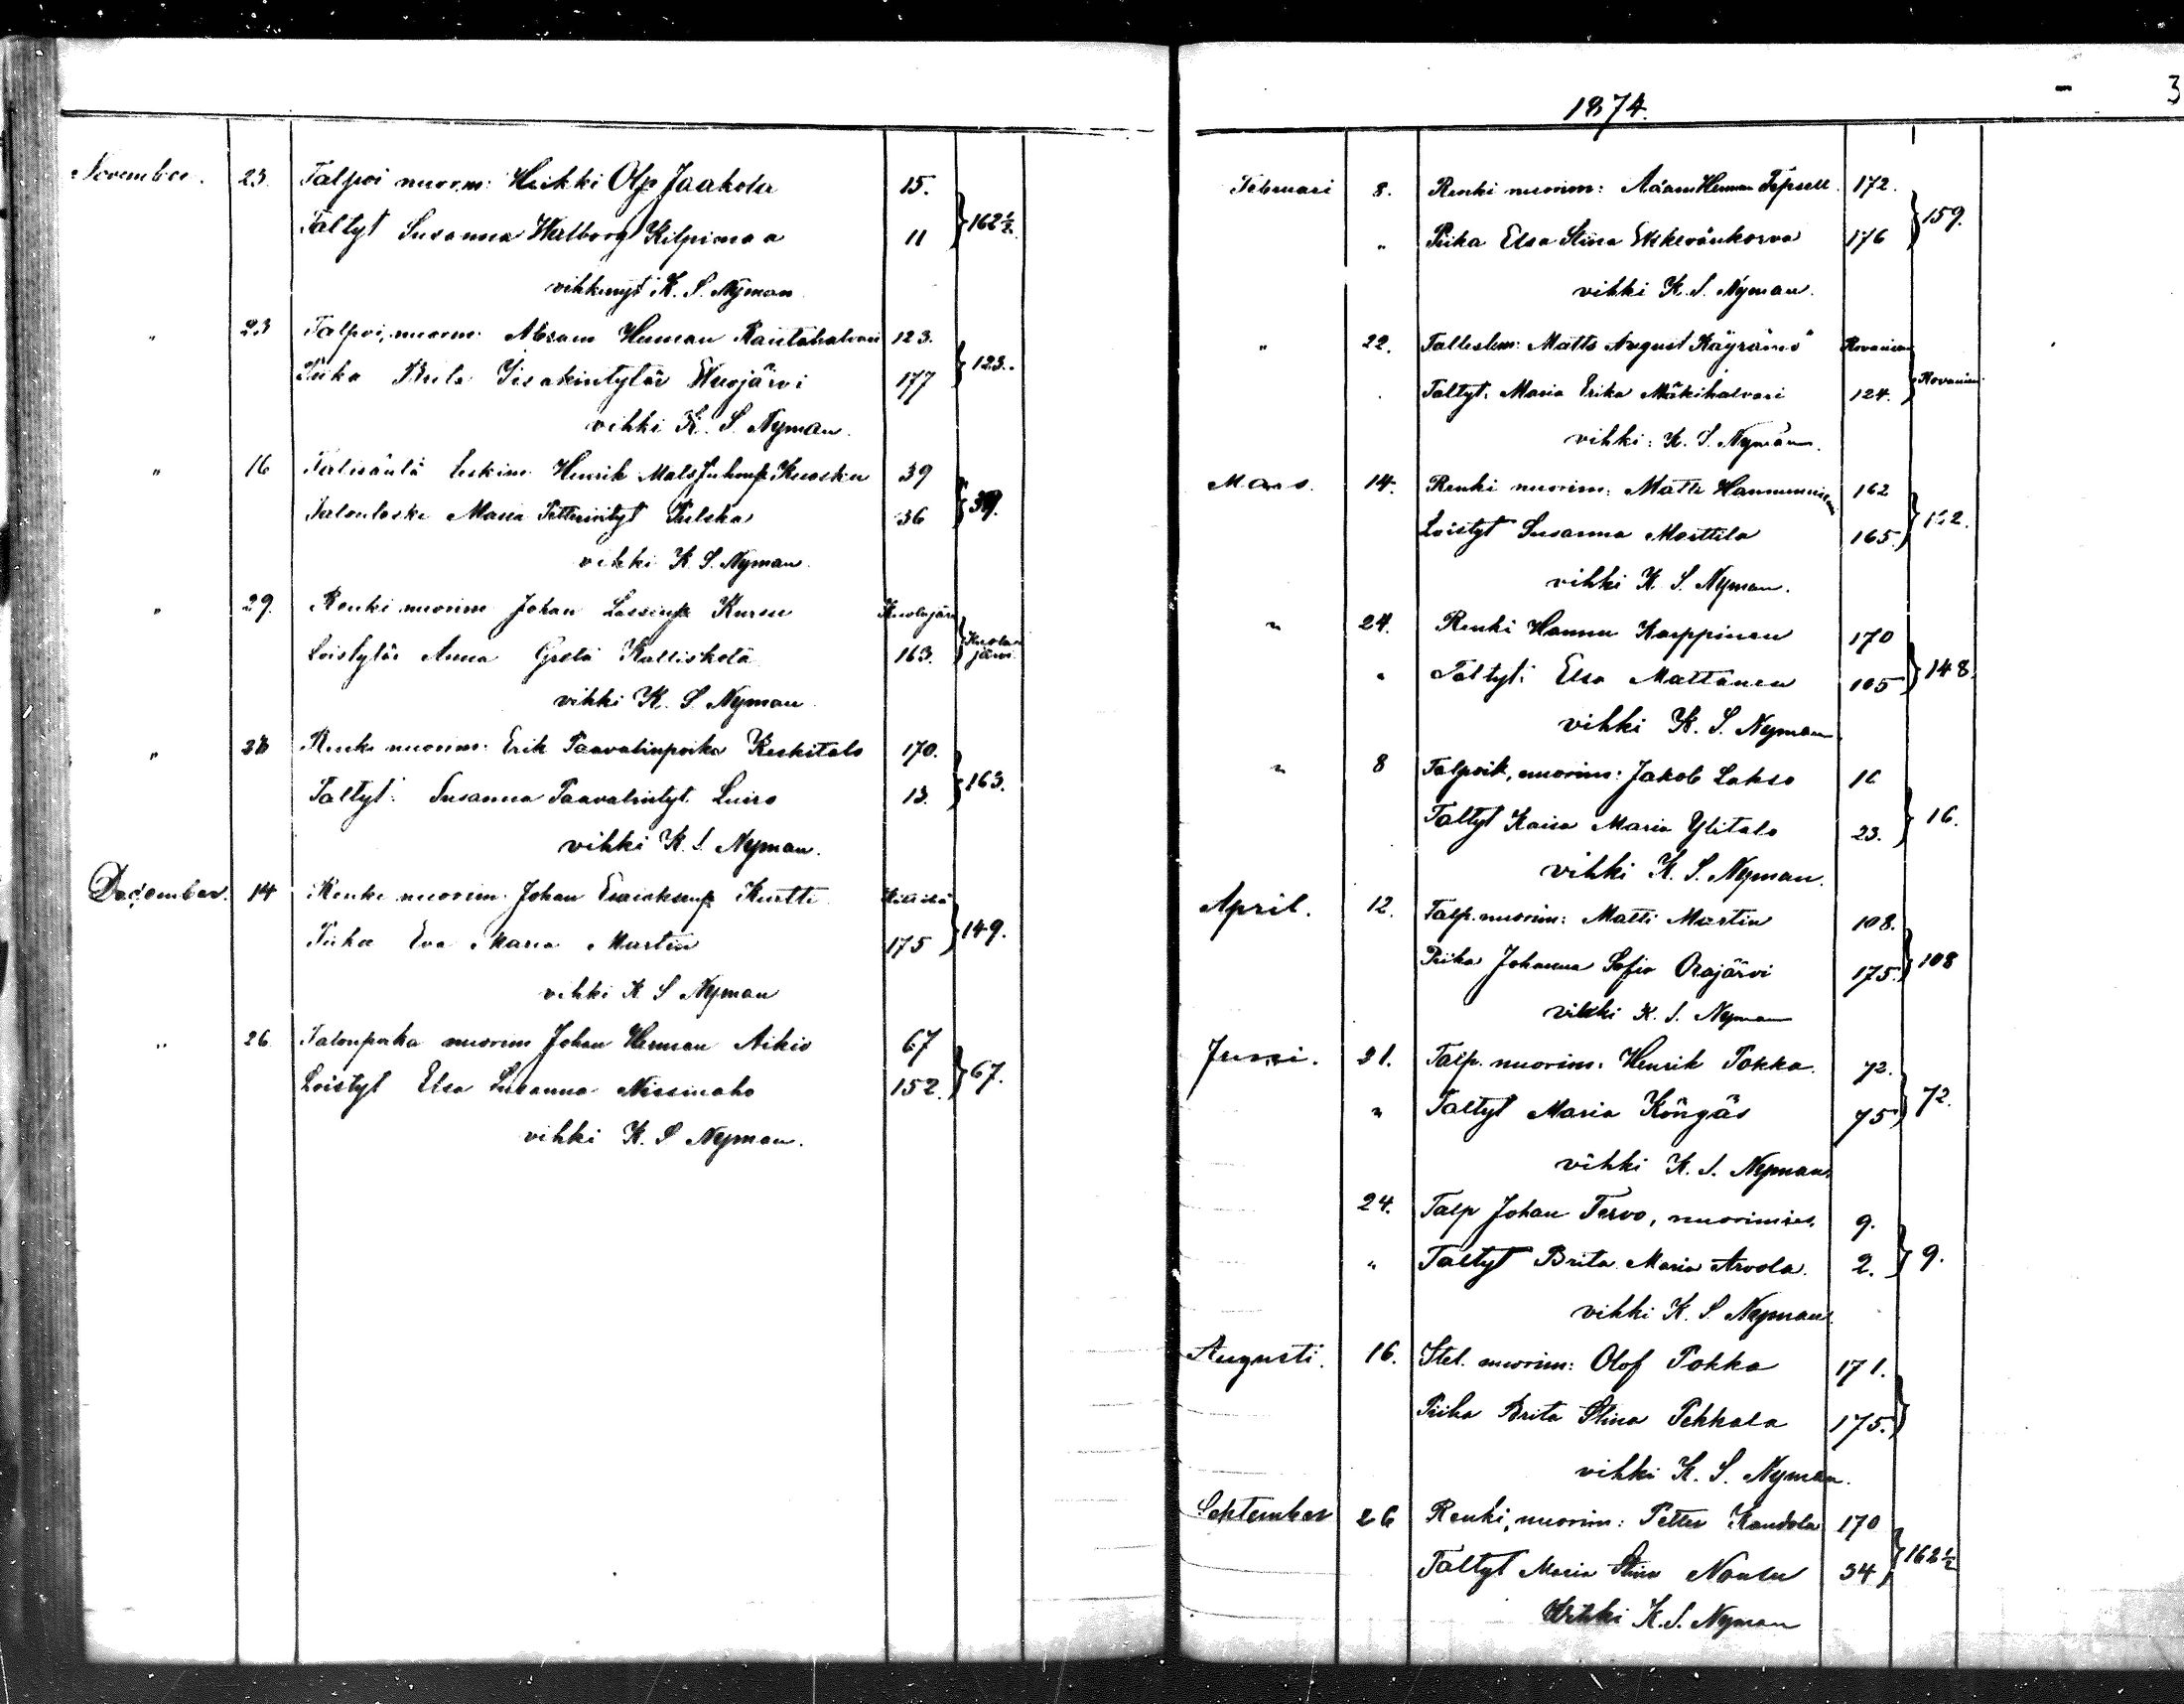 November. 23. Talpoi nuorm: Heikki Olp. Jaakola 15.
Taltyt Susanna Walborg Kilpimaa 11 } 162½
vihkinyt K. S. Nyman
" 23 Talpoi, nuorm: Abram Herman Rautahalvari 123.
Piika Brita Iisakintytär Unojärvi 177 } 123.
vihki K. S. Nyman.
" 16 Talisäntä leskim. Henrik Mats Juhonp. Kuosku 39
Talonleski Maria Petterintyt Pulska 36 } 39.
vihki K. S. Nyman.
" 29. Renki nuorim Johan Lassinp. Kursu Kuolajärvi
Loistytär Anna Greta Kalliskota 163. } Kuolajärvi
vihki K. S. Nyman
" 28 Renki nuorim: Erik Paavalinpoika Keskitalo 170.
Taltyt: Susanna Paavalintyt. Luiro 13. } 163.
vihki K. S. Nyman.
December. 14 Renki nuorim: Johan Kurtti Kittilä
Piika Eva Maria Martin 175 } 149.
vihki K S Nyman
" 26 Talonpoika nuorim Johan Herman Aikio 67
Loistyt Elsa Susanna Nissinaho 152. } 67.
vihki K. S Nyman.
3
1874.
Februari 8. Renki nuorim: Adam Herman Tepsell 172.
" Piika Elsa Stina 176 } 159.
vihki K. S. Nyman.
" 22. Matts August Käyrämö Rovaniemi
Taltyt. Maria Erika Mäkihalvari 124. } Rovaniemi
vihki: K. S. Nyman.
Mars. 14. Renki nuorim: Matti Hannuniemi 162
Loistyt Susanna Marttila 165. } 162.
vihki K. S. Nyman.
" 24. Renki Hannu Karppinen 170
" Taltyt: Elsa Mattanen 105 } 148.
vihki K. S. Nyman
" 8 Talpoik, nuorim: Jakob Lakso 16
Taltyt Kaisa Maria Ylitalo 23. } 16.
vihki K. S. Nyman.
April. 12. Talp. nuorim: Matti Martin 108.
Piika Johanna Sofia Orajärvi 175. } 108
vihki K. S. Nyman
Juni. 21. Talp. nuorim: Henrik Pokka. 72.
" Taltyt Maria Köngäs 75 } 72.
vihki K. S. Nyman.
24. Talp Johan Tervo, nuorimies. 9.
" Taltyt Brita Maria Arvola. 2. } 9.
vihki K. S. Nyman.
Augusti. 16. Itel. nuorim: Olof Pokka 171.
Piika Brita Stina Pekkala 175. }
vihki K. S. Nyman.
September 26 Renki, nuorim: Petter Kandola 170
Taltyt Maria Stina Nousu 34 } 162½
Vihki K. S. Nyman